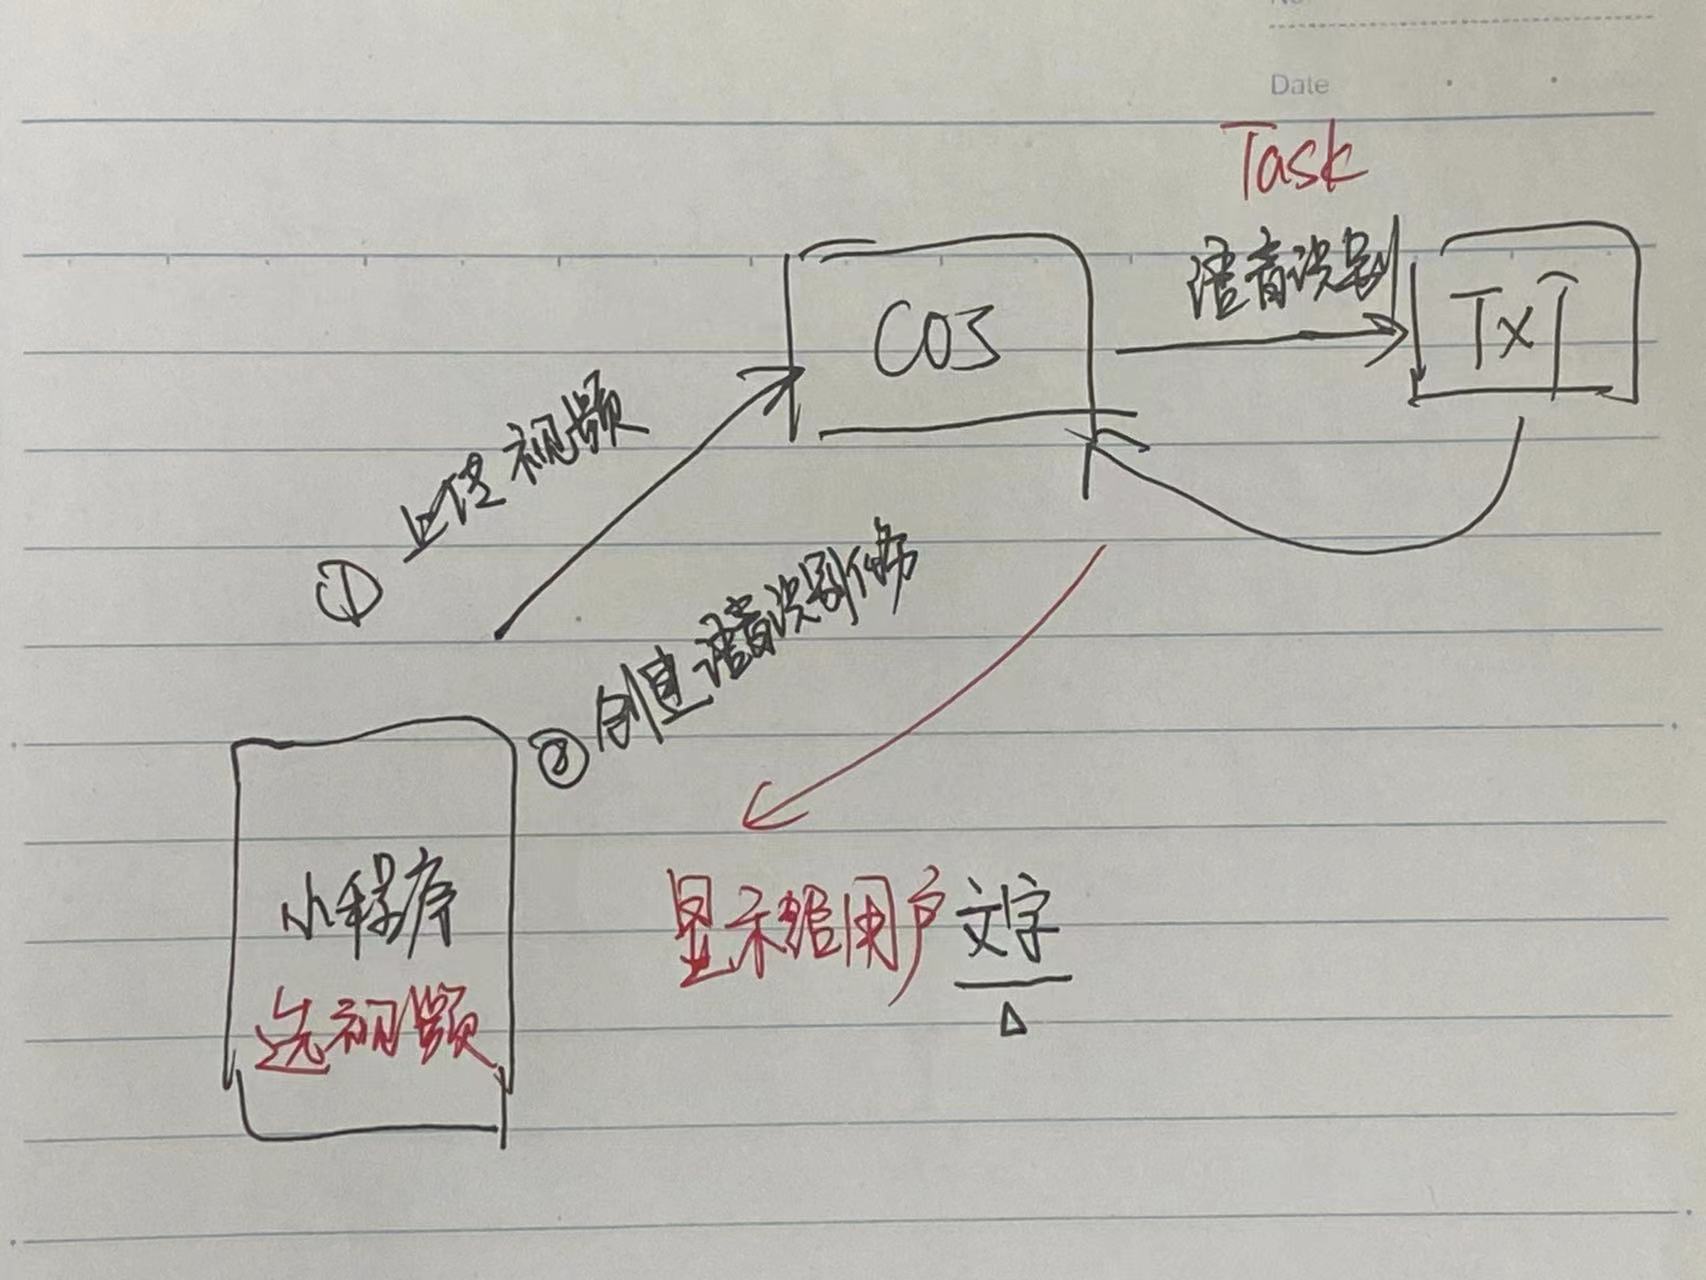 Date
Task
语音识别
COS
TXT
① 上传视频
② 创建语音识别任务
小程序
选视频
显示给用户文字